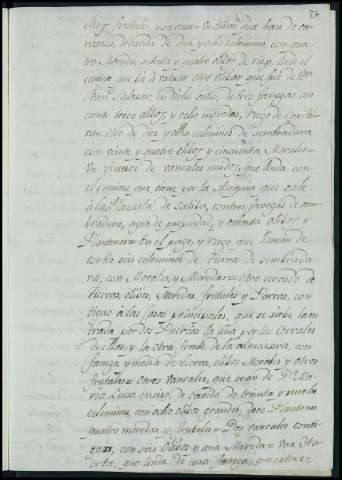 24
otros frutales, y
de diez y ocho celemines, con qua-
tro Moredas, ochenta y quatro olibos de Viejo. desde el
camino que bá á otro Olibar que fué de Dn
Salazar, en dicho sitio, de tres fanegas con
ciento trece olibos, y ocho moredas, riego de
Otro de diez y ocho celemines de sembradura
con veinte y quatro olibos y cincuenta Morales=
Un de vancales unidos, que linda con
el camino que tiene por la Azequia que sale
á la Plazuela de con tres fanegas de sem-
bradura, agua de propiedad, y ochenta olibos y
Plantones= En el pago, y riego que llaman de
cortes seis celemines de tierra de sembradu-
ra, con Morales, y Moredas= Otro cercado de
tierras, olibos, Moredas, frutales y Parras, con-
tiguo á las casas principales, que se sirbe la en-
trada por dos Puertas la una por los Corrales
de ellas, y la otra, frente de la almazara, con
fanega y media de tierra, olibos Morales y otros
frutales= Otros vancales, que eran de Da. Ma-
ria Luisa de cavida de treinta y nuebe
celemines, con ocho olibos grandes, doce Plantones
quatro moredas y frutales= Dos vancales conti-
guos, con seis Olibos y una Moreda= Una Hu-
erta, que linda de una fanega, con catorce